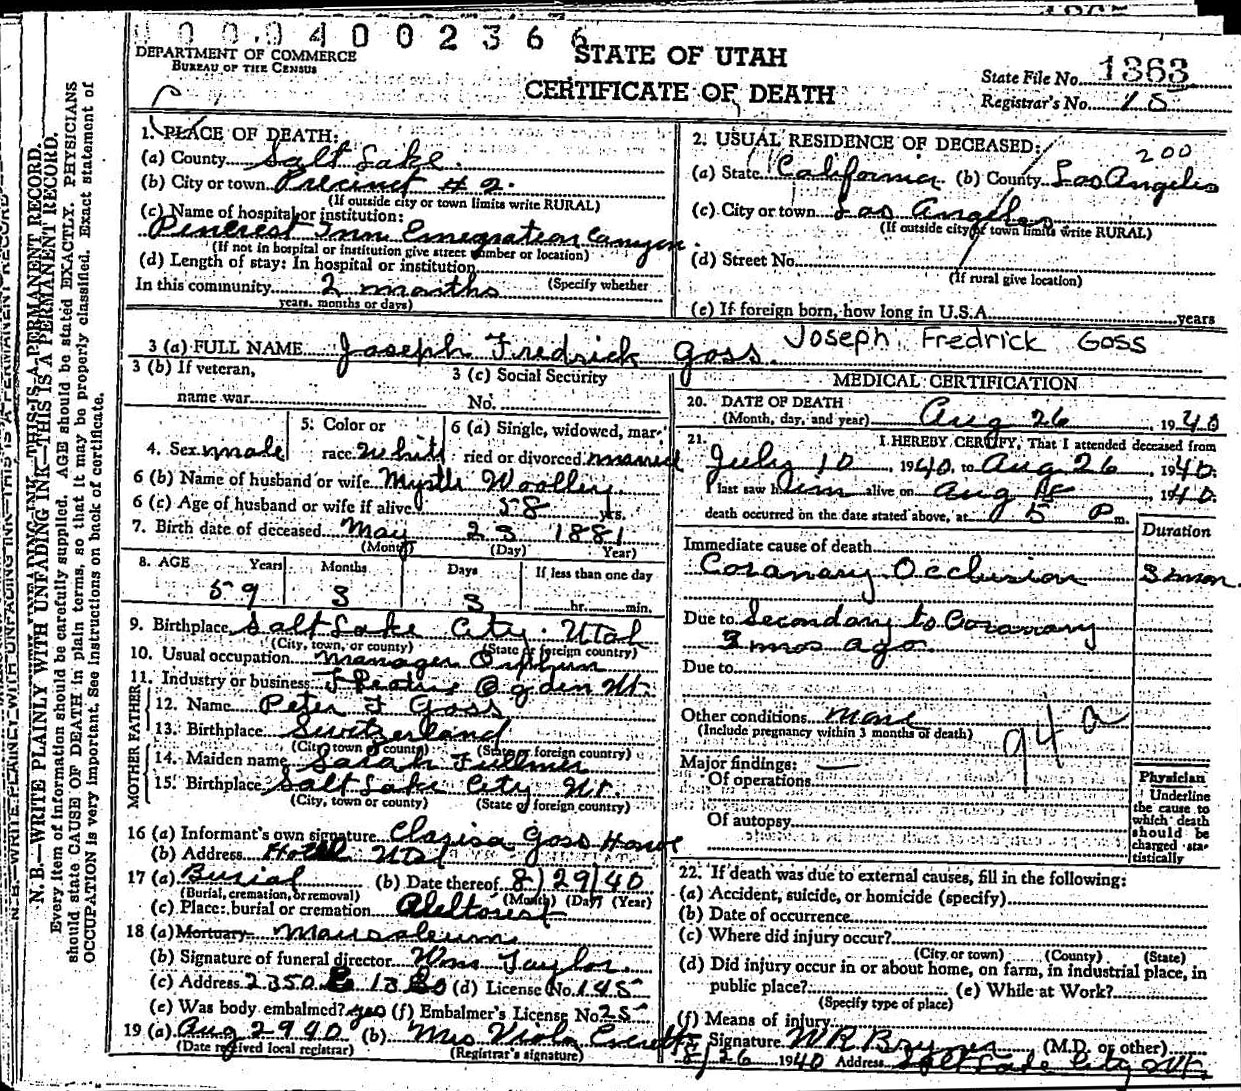 0 0 0 0 4 0 0 2 3 6 6
DEPARTMENT OF COMMERCE
BUREAU OF THE CENSUS
STATE OF UTAH
CERTIFICATE OF DEATH
State File No. 1363
Registrar's No. 15
N.B.—WRITE PLAINLY WITH UNFADING INK—THIS IS A PERMANENT RECORD.
Every item of information should be carefully supplied. AGE should be stated EXACTLY. PHYSICIANS
should state CAUSE OF DEATH in plain terms, so that it may be properly classified. Exact statement of
OCCUPATION is very important. See instructions on back of certificate.
1. PLACE OF DEATH:
(a) County Salt Lake
(b) City or town Precinct # 2.
(If outside city or town limits write RURAL)
(c) Name of hospital or institution:
Pinecrest Inn Emegration Canyon.
(If not in hospital or institution give street number or location)
(d) Length of stay: In hospital or institution
In this community 2 months (Specify whether
years, months or days)
2. USUAL RESIDENCE OF DECEASED:
200
(a) State California (b) County Los Angeles
(c) City or town Los Angeles
(If outside city of town limits write RURAL)
(d) Street No.
(If rural give location)
(e) If foreign born, how long in U.S.A. years
3 (a) FULL NAME Joseph Fredrick Goss. Joseph Fredrick Goss
3 (b) If veteran,
name war
3 (c) Social Security
No.
4. Sex male
5. Color or
race White
6 (a) Single, widowed, mar-
ried or divorced married
6 (b) Name of husband or wife Myrtle Woolley
6 (c) Age of husband or wife if alive 58 yrs.
7. Birth date of deceased May 23 1881
(Month) (Day) Year)
8. AGE Years Months Days If less than one day
59 3 3 hr. min.
9. Birthplace Salt Lake City. Utah
(City, town, or county) (State or foreign country)
10. Usual occupation manager Orphum
11. Industry or business Theatre Ogden Ut.
FATHER
12. Name Peter J Goss
13. Birthplace Switzerland
(City, town or county) (State or foreign country)
MOTHER
14. Maiden name Sarah Fullmer
15. Birthplace Salt Lake City Ut.
(City, town or county) (State or foreign country)
16 (a) Informant's own signature Clarisa Goss
(b) Address Hotel Utah
17 (a) Burial (b) Date thereof 8/29/40
(Burial, cremation, or removal) (Month) (Day) (Year)
(c) Place: burial or cremation
18 (a) Mortuary Mausoleum
(b) Signature of funeral director Wm Taylor.
(c) Address 2350 E 13 So (d) License No. 145
(e) Was body embalmed? yes (f) Embalmer's License No. 25
19 (a) Aug 29 40 (b) Mrs Viola Everett
(Date received local registrar) (Registrar's signature)
MEDICAL CERTIFICATION
20. DATE OF DEATH
(Month, day, and year) Aug 26, 1940
21. I HEREBY CERTIFY, That I attended deceased from
July 10, 1940, to Aug 26, 1940.
I last saw him alive on Aug 18, 1940.
death occurred on the date stated above, at 5 P m.
Duration
Immediate cause of death
Coranary Occlusion 3 mon.
Due to Secondary to Coronary
3 mos ago.
Due to
Other conditions none
(Include pregnancy within 3 months of death)
94 a
Major findings: —
Of operations
Of autopsy
Physician
Underline
the cause to
which death
should be
charged sta-
tistically
22. If death was due to external causes, fill in the following:
(a) Accident, suicide, or homicide (specify)
(b) Date of occurrence
(c) Where did injury occur?
(City or town) (County) (State)
(d) Did injury occur in or about home, on farm, in industrial place, in
public place? (e) While at Work?
(Specify type of place)
(f) Means of injury
Signature (M.D. or other)
8/26 1940 Address Salt Lake City Ut.